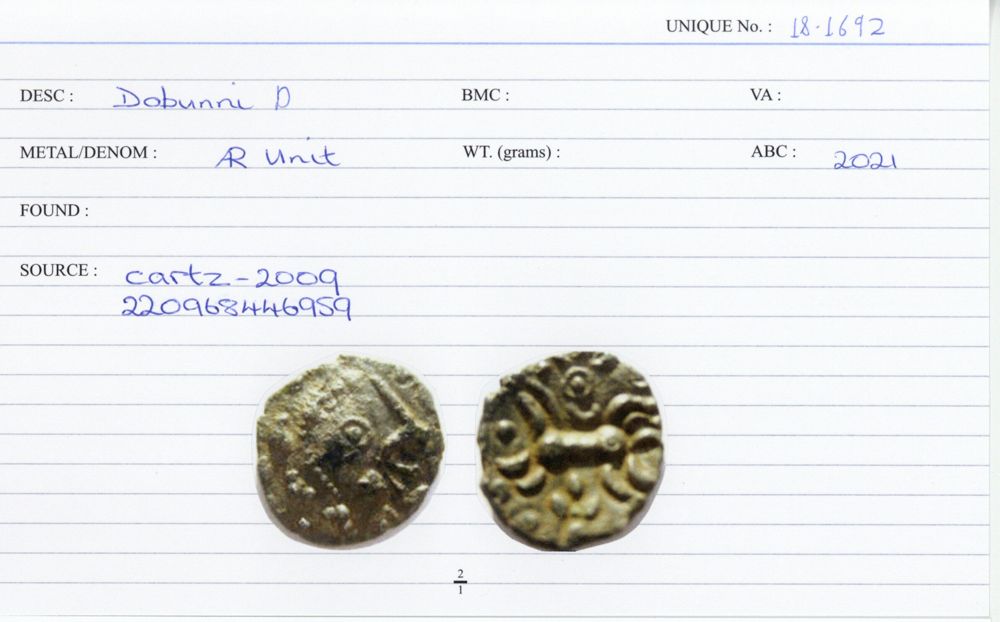 UNIQUE No. : 18.1692
DESC : Dobunni D BMC : VA :
METAL/DENOM : AR Unit WT. (grams) : ABC : 2021
FOUND :
SOURCE : cartz-2009
220968446959
2
1